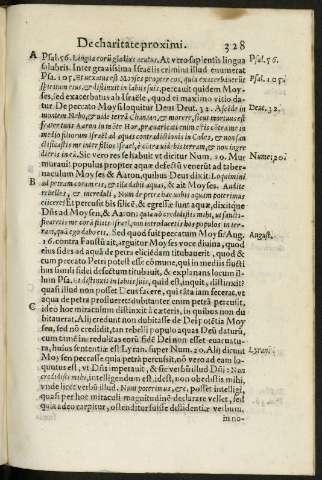 De charitate proximi. 328
A Psal. 56. Lingua eorũ gladius acutus. At vero sapientis lingua Psal. 56.
salubris. Inter grauissima Israëlis crimina illud enumerat
Psa. 105. Et vexatus est Moyses propter eos, quia exacerbauerũt Psal. 105.
spiritum eius, & distinxit in labijs suis, peccauit quidem Moy-
ses, sed exacerbatus ab Israële, quod ei maximo vitio da-
tur. De peccato Moysi loquitur Deus Deut. 32. Ascẽde in Deut. 32.
montem Nebo, & vide terrã Chanaan, & morere, sicut mortuus est
frater tuus Aaron in mõte Hor, præuaricati enim estis cõtra me in
medio filiorum Israël ad aquas contradictionis in Cades, & non san
ctificastis me inter filios Israël, è cõtra videbis terram, & non ingre
dieris in eã. Sic vero res se habuit vt dicitur Num. 20. Mur Nume. 20.
murauit populus propter aquæ defectũ venerũt ad taber-
naculum Moyses & Aaron, quibus Deus dixit. Loquimini
B ad petram coram eis, & illa dabit aquas, & ait Moyses. Audite
rebelles, & increduli, Num de petra hac vobis aquam poterimus
eiicere? Et percussit bis silicẽ, & egressæ sunt aquæ, dixitque
Dñs ad Moysen, & Aaron: quia nõ credidistis mihi, vt sancti-
ficaretis me corã filijs Israël, non introducetis hos populos in ter-
ram, quã ego dabo eis. Sed quod fuit peccatum Moysi? Aug. August.
16. contra Faustũ ait, arguitur Moyses voce diuina, quod
eius fides ad aquã de petra elicidam titubauerit, quod &
cum peccato Petri potest esse comune, qui in mediis fluctibus
nimis fidei defectum titubauit, & explanans locum il-
lum Psa. Et distinxit in labiis suis, quid est, inquit, distinxit?
quasi illud non posset Deus facere, qui tãta iam fecerat, vt
aqua de petra proflueret: dubitanter enim petrã percussit,
C ideo hoc miraculum distinxit à cæteris, in quibus non du
bitauerat. Alij credunt non dubitasse de Dei potẽtia Moy
sen, sed nõ credidit, tan rebelli populo aquas Deũ daturũ,
cum timẽ in redulitas corũ fidẽ Dei non esset euacuatu-
ra, huius sententiæ est Lyran. super Num. 20. Alij dicunt Lyran.
Moysen peccasse quia petrã percussit, nõ vero ad eam lo-
quutus est, vt Dñs imperauit, & sic verbũ illud Dñi: Non
credidistis mihi, intelligendum est, idest, non obedistis mihi,
vnde licet verbũ illud. Num poterimus, &c. posset intelligi,
quasi per hoc miraculi magnitudinẽ declarare vellet, sed
quia à deo carpitur, ostenditur fuisse desidentiæ verbum,
in no-